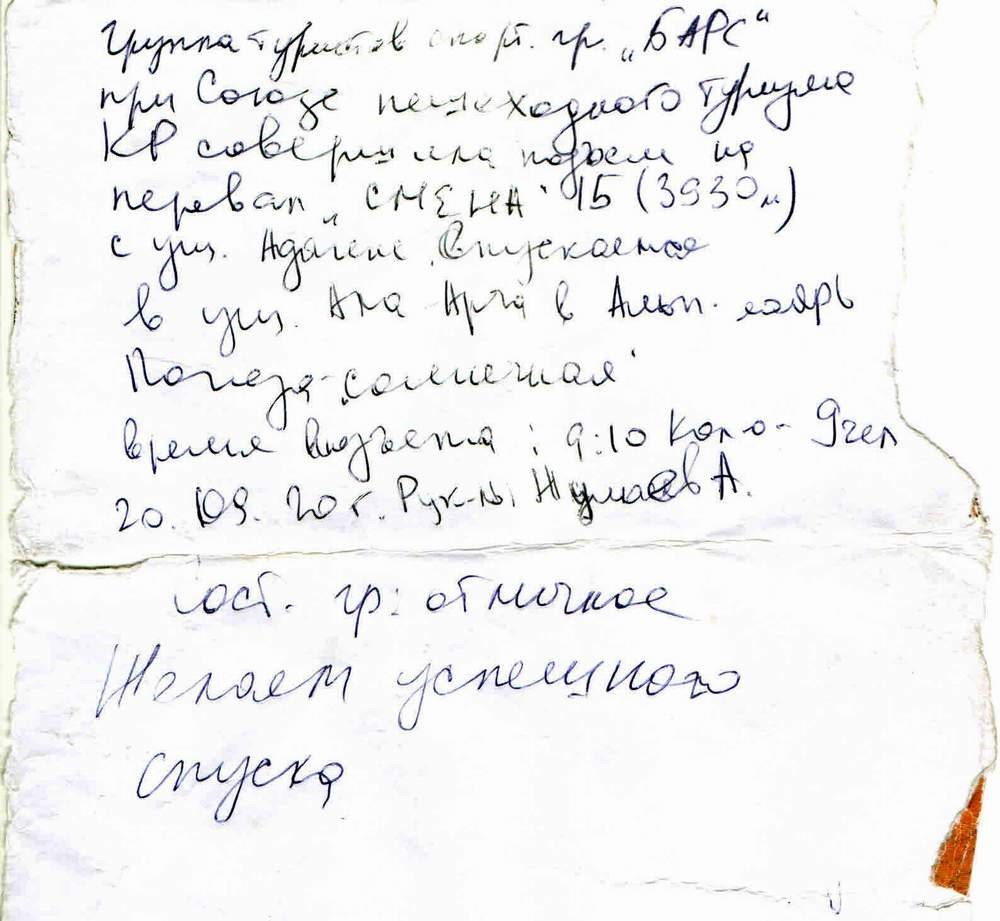 Группа туристов спорт. гр. „БАРС“
при Союзе пешеходного туризма
КР совершила подъем на
перевал „СМЕНА“ 1Б (3930м)
с ущ. Адыгене. Спускаемся
в ущ. Ала Арча в Альп. лагярь
Погода - „солнечная“
время подъема : 9:10 кол-о - 9чел
20.09.20г. Рук-ль Жумаев А.
Сост. гр: отличное
Желаем успешного
спуска